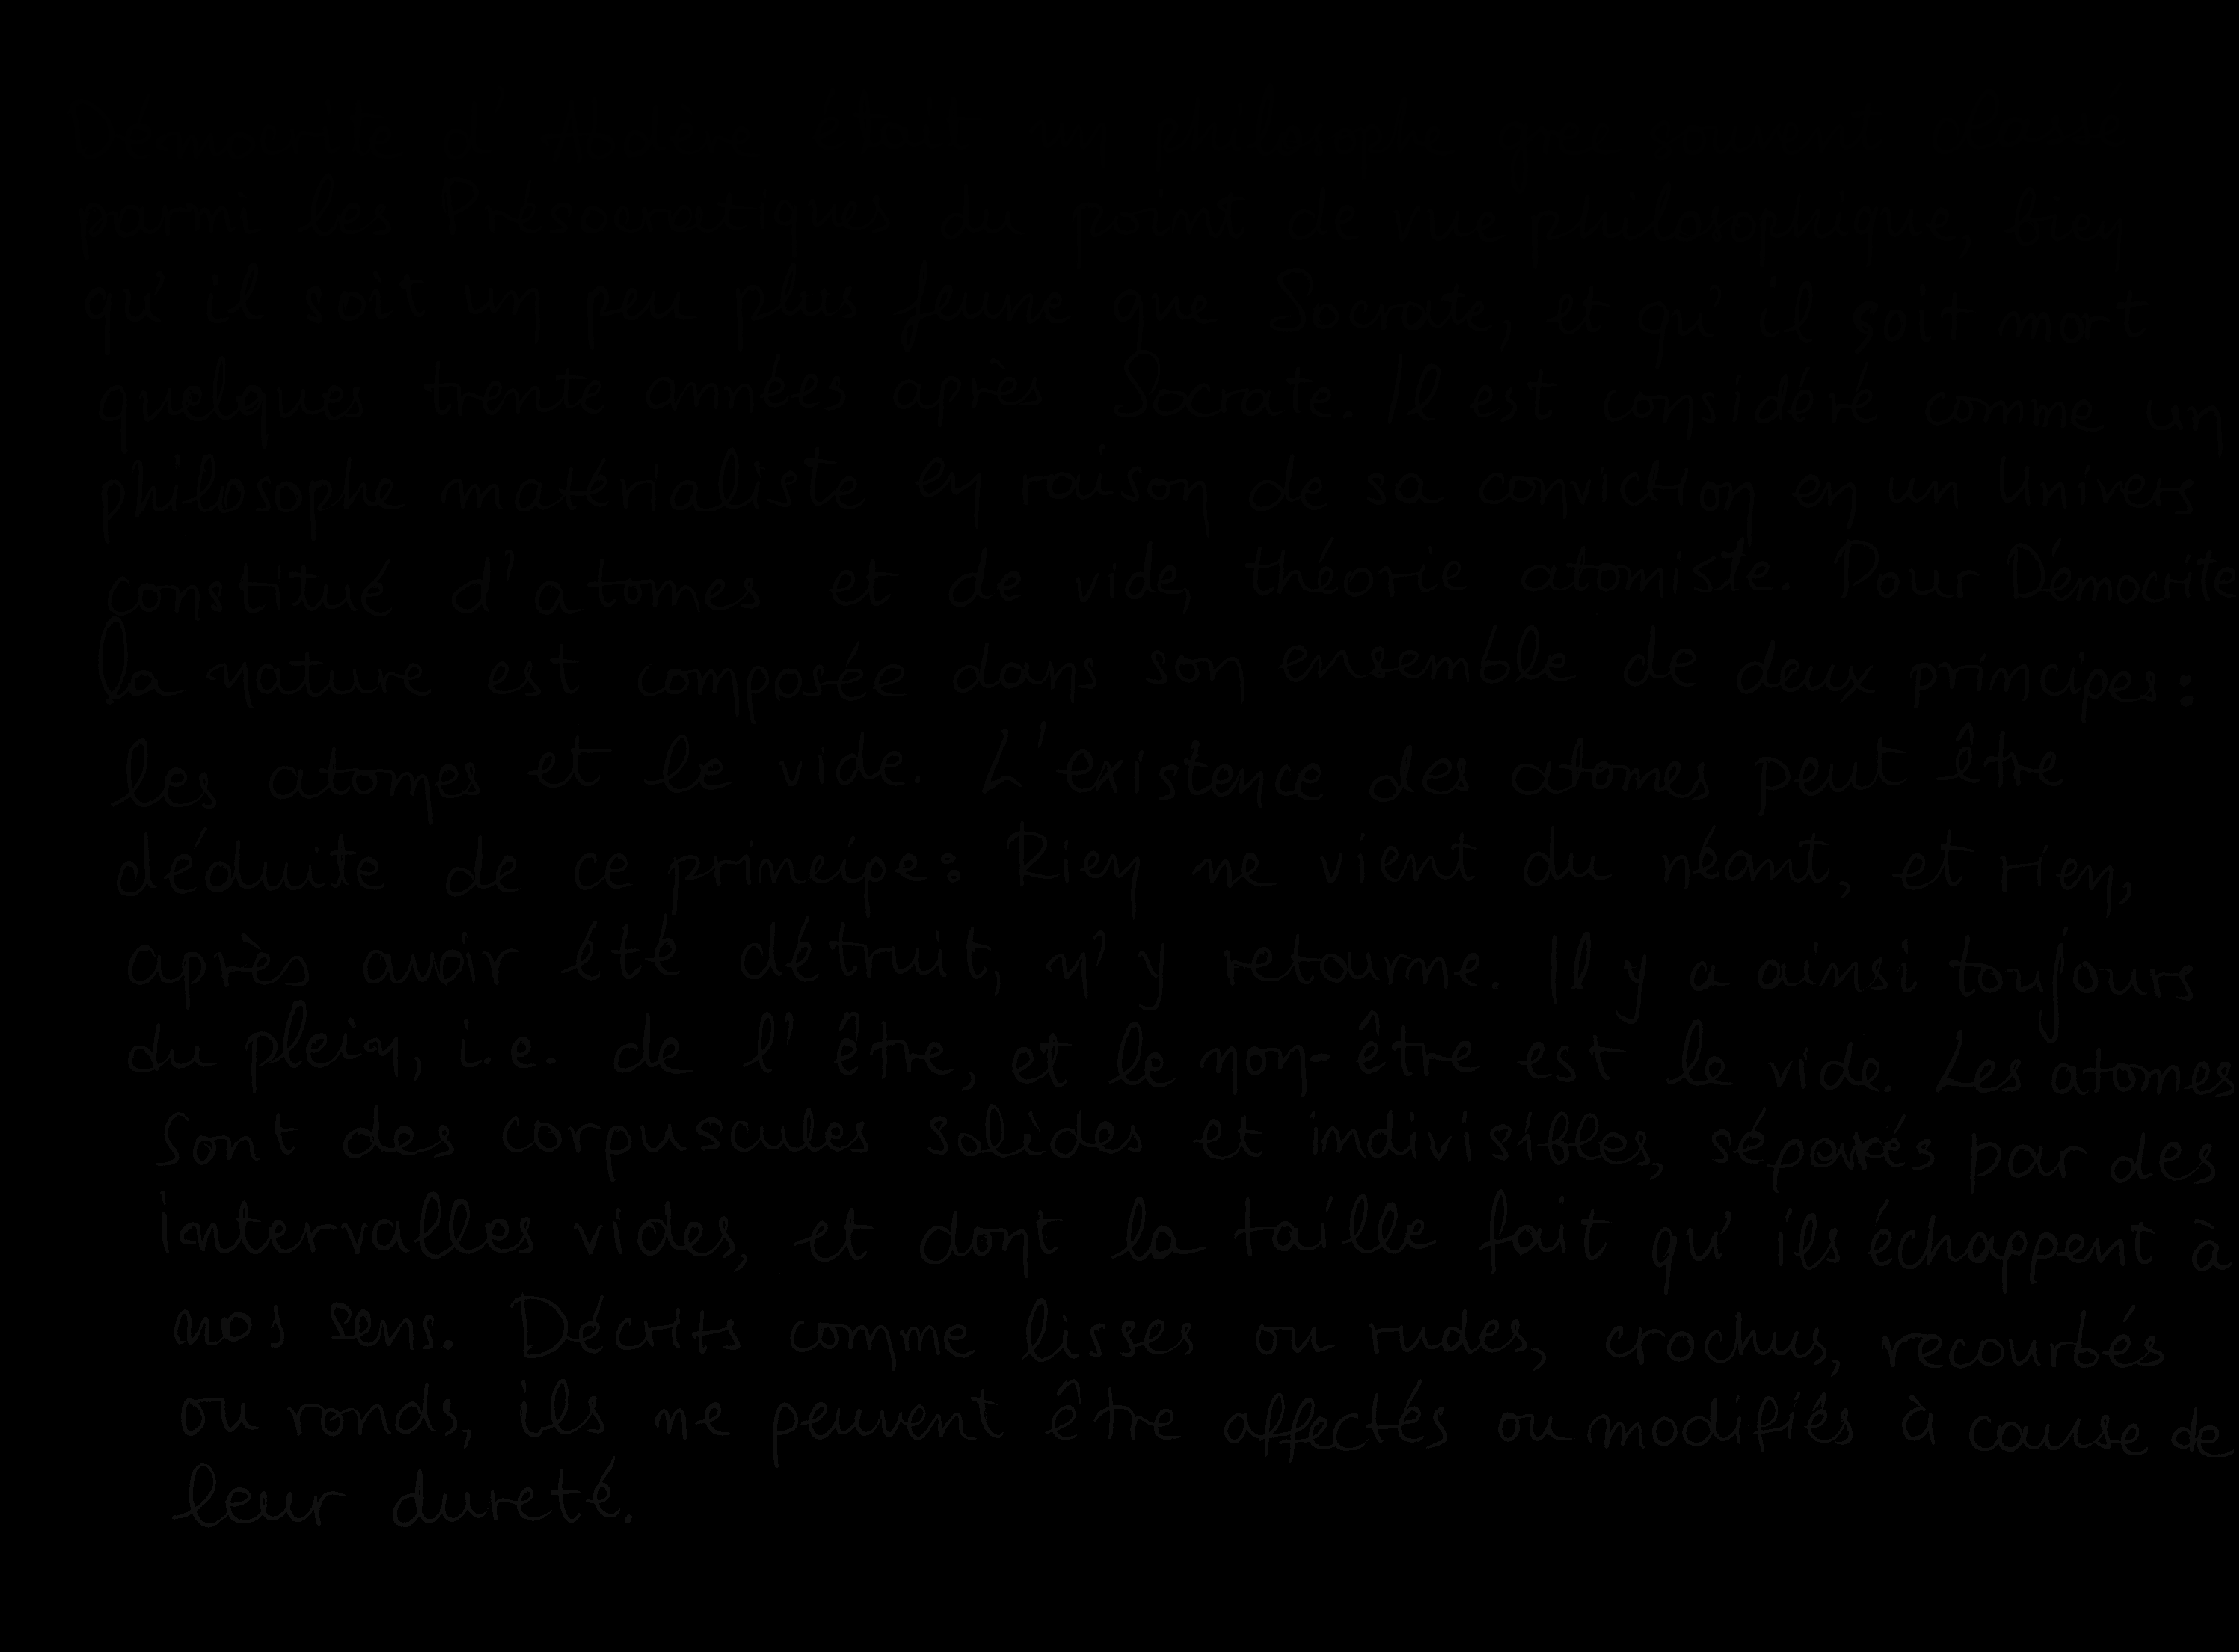 Démocrite d'Abdère était un philosophe grec souvent classé
parmi les Présocratiques du point de vue philosophique, bien
qu'il soit un peu plus jeune que Socrate, et qu'il soit mort
quelques trente années après Socrate. Il est considéré comme un
philosophe matérialiste en raison de sa conviction en un Univers
constitué d'atomes et de vide, théorie atomiste. Pour Démocrite
la nature est composée dans son ensemble de deux principes:
les atomes et le vide. L'existence des atomes peut être
déduite de ce principe: Rien ne vient du néant, et rien,
après avoir été détruit, n'y retourne. Il y a ainsi toujours
du plein, i.e. de l'être, et le non-être est le vide. Les atomes
sont des corpuscules solides et indivisibles, séparés par des
intervalles vides, et dont la taille fait qu'ils échappent à
nos sens. Décrits comme lisses ou rudes, crochus, recourbés
ou ronds, ils ne peuvent être affectés ou modifiés à cause de
leur dureté.